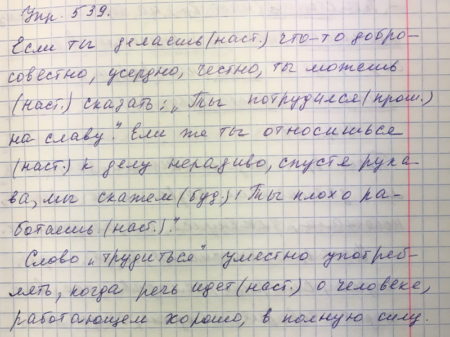 Упр. 539.
Если ты делаешь (наст.) что-то добро-
совестно, усердно, честно, ты можешь
(наст.) сказать: „Ты потрудился (прош.)
на славу." Если же ты относишься
(наст.) к делу нерадиво, спустя рука-
ва, мы скажем (буд.): „Ты плохо ра-
ботаешь (наст.)."
Слово „трудиться" уместно употреб-
лять, когда речь идет (наст.) о человеке,
работающем хорошо, в полную силу.